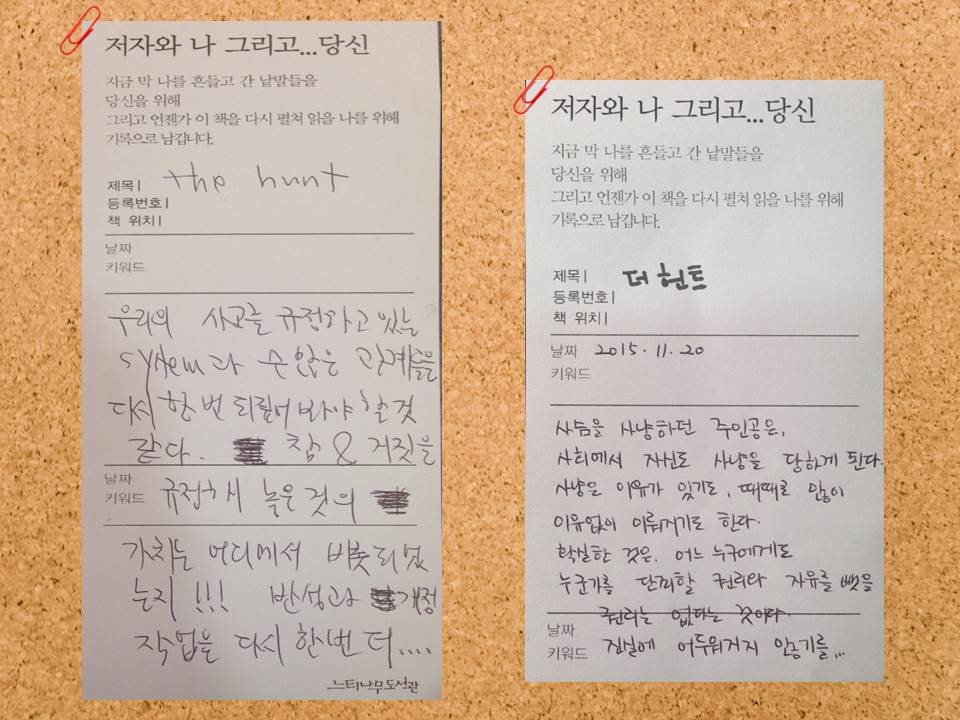 저자와 나 그리고...당신
지금 막 나를 흔들고 간 낱말들을
당신을 위해
그리고 언젠가 이 책을 다시 펼쳐 읽을 나를 위해
기록으로 남깁니다.
제목| the hunt
등록번호|
책 위치|
날짜
키워드
우리의 사고를 규정하고 있는
system과 수많은 관계들을
다시 한번 되짚어 봐야 할것
같다. 참 & 거짓을
날짜
키워드 규정해 놓은 것의
가치는 어디에서 비롯되었
는지!!! 반성과 개정
작업을 다시 한번 더....
느티나무도서관
저자와 나 그리고...당신
지금 막 나를 흔들고 간 낱말들을
당신을 위해
그리고 언젠가 이 책을 다시 펼쳐 읽을 나를 위해
기록으로 남깁니다.
제목| 더 헌트
등록번호|
책 위치|
날짜 2015. 11. 20
키워드
사슴을 사냥하던 주인공은,
사회에서 자신도 사냥을 당하게 된다.
사냥은 이유가 있기도, 때때로 많이
이유없이 이뤄지기도 한다.
확실한 것은, 어느 누구에게도
누군가를 단죄할 권리와 자유를 뺏을
권리는 없다는 것이다.
날짜
키워드 진실에 어두워지지 않기를...